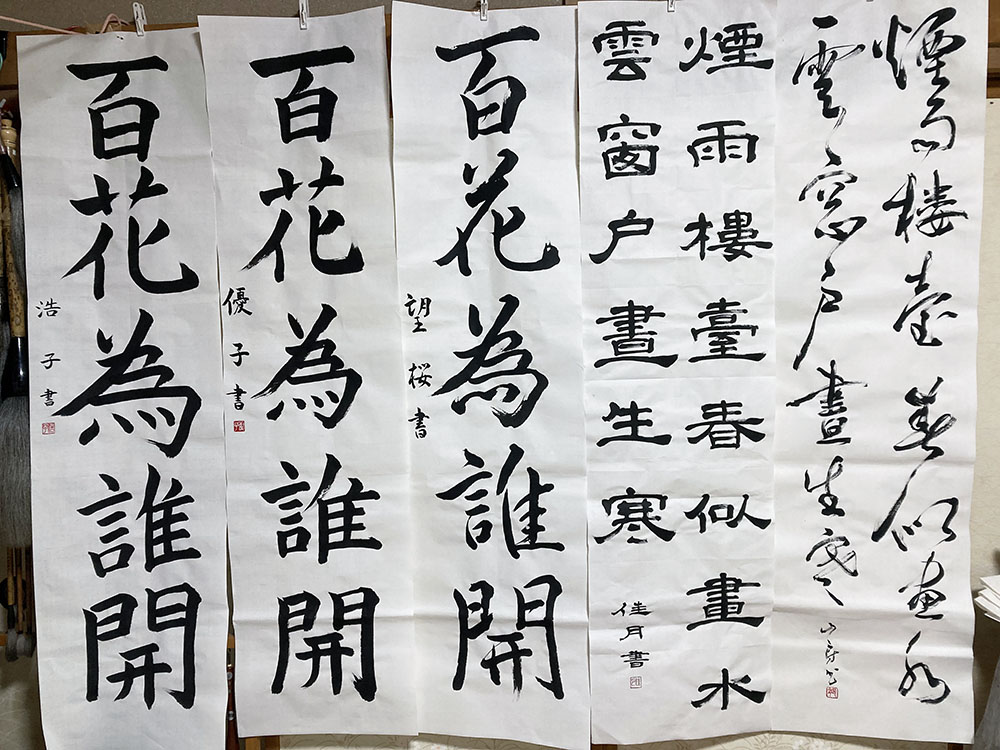 煙雨楼臺春似画水
雲窓戸晝生寒
煙雨樓臺春似畫水
雲窗户晝生寒
佳月書
百花為誰開
望桜書
百花為誰開
優子書
百花為誰開
浩子書